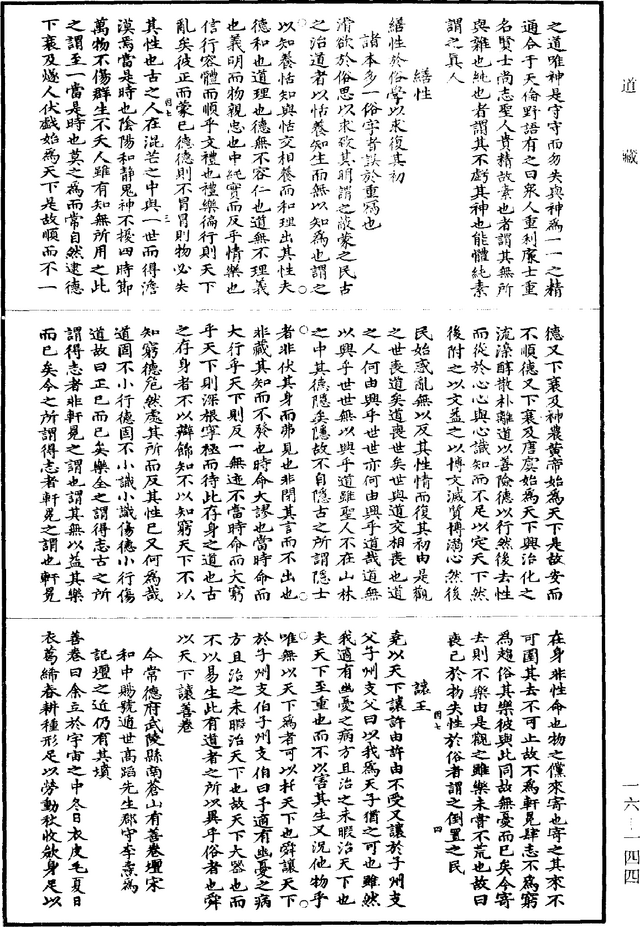 道藏
之道唯神是守守而勿失與神爲一一之精
通合于天倫野語有之曰衆人重利廉士重
名賢士尚志聖人貴精故素也者謂其無所
與雜也純也者謂其不虧其神也能體純素
謂之真人
繕性
諸本多一俗字者誤於重寫也
繕性於俗學以求復其初
滑欲於俗思以求致其明謂之蔽蒙之民古
之治道者以恬養知生而無以知爲也謂之
以知養恬知與恬交相養而和理出其性夫
德和也道理也德無不容仁也道無不理義
也義明而物親忠也中純實而反乎情樂也
信行容體而順乎文禮也禮樂徧行則天下
亂矣彼正而蒙已德德則不冒冒則物必失
其性也古之人在混芒之中與一世而得澹
四七 三
漠焉當是時也陰陽和靜鬼神不擾四時節
萬物不傷群生不夭人雖有知無所用之此
之謂至一當是時也莫之爲而常自然逮德
下衰及燧人伏戲始爲天下是故順而不一
德又下衰及神農黃帝始爲天下是故安而
不順德又下衰及唐虞始爲天下興治化之
流澆醇散朴離道以善險德以行然後去性
而從於心心與心識知而不足以定天下然
後附之以文益之以博文滅質博溺心然後
民始惑亂無以反其性情而復其初由是觀
之世喪道矣道喪世矣世與道交相喪也道
之人何由興乎世世亦何由興乎道哉道無
以興乎世世無以興乎道雖聖人不在山林
之中其德隱矣隱故不自隱古之所謂隱士
者非伏其身而弗見也非閉其言而不出也
非藏其知而不發也時命大謬也當時命而
大行乎天下則反一無迹不當時命而大窮
乎天下則深根寧極而待此存身之道也古
之存身者不以辯飾知不以知窮天下不以
知窮德危然處其所而反其性已又何爲哉
道固不小行德固不小識小識傷德小行傷
道故曰正已而已矣樂全之謂得志古之所
謂得志者非軒冕之謂也謂其無以益其樂
而已矣今之所謂得志者軒冕之謂也軒冕
在身非性命也物之儻來寄也寄之其來不
可圉其去不可止故不爲軒冕肆志不爲窮
約趨俗其樂彼與此同故無憂而已矣今寄
去則不樂由是觀之雖樂未嘗不荒也故曰
喪己於物失性於俗者謂之倒置之民
四七 四
讓王
堯以天下讓許由許由不受又讓於子州支
父子州支父曰以我爲天子猶之可也雖然
我適有幽憂之病方且治之未暇治天下也
夫天下至重也而不以害其生又況他物乎
唯無以天下爲者可以托天下也舜讓天下
於子州支伯子州支伯曰予適有幽憂之病
方且治之未暇治天下也故天下大器也而
不以易生此有道者之所以異乎俗者也舜
以天下讓善卷
今常德府武陵縣南蒼山有善卷壇宋
和中賜號遁世高蹈先生郡守李燾爲
記壇之近仍有其墳
善卷曰余立於宇宙之中冬日衣皮毛夏日
衣葛絺春耕種形足以勞動秋收斂身足以
一六－一四四